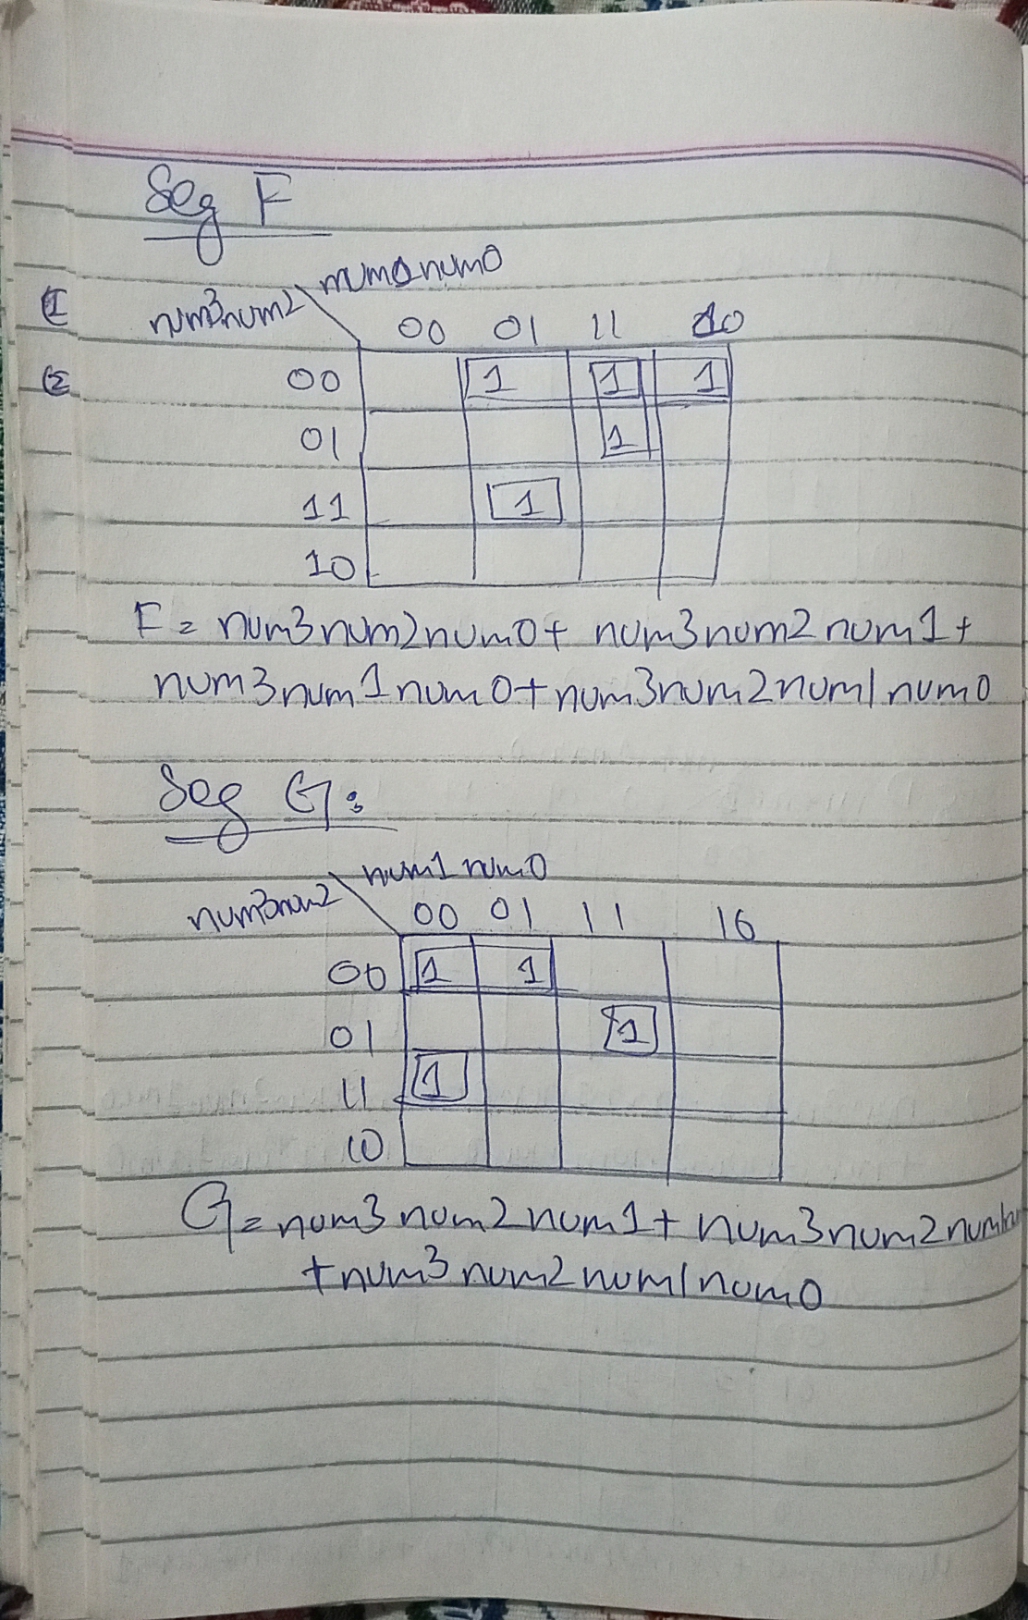 Seg F
num0num0
num3num2
00 01 11 10
00 1 1 1
01 1
11 1
10
F = num3num2num0+ num3num2num1+
num3num1num0+num3num2num1num0
Seg G:
num1num0
num3num2
00 01 11 10
00 1 1
01 1
11 1
10
G = num3num2num1+ num3num2num1
+num3num2num1num0